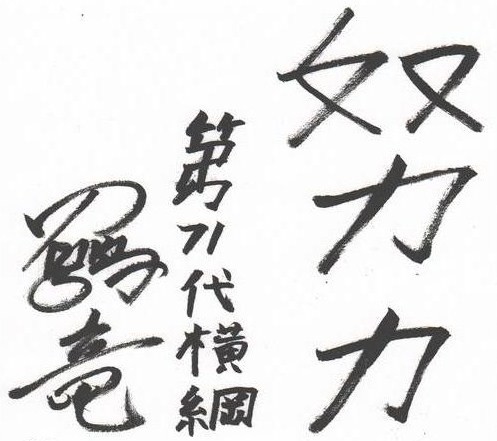 努力
第71代横綱
鶴竜